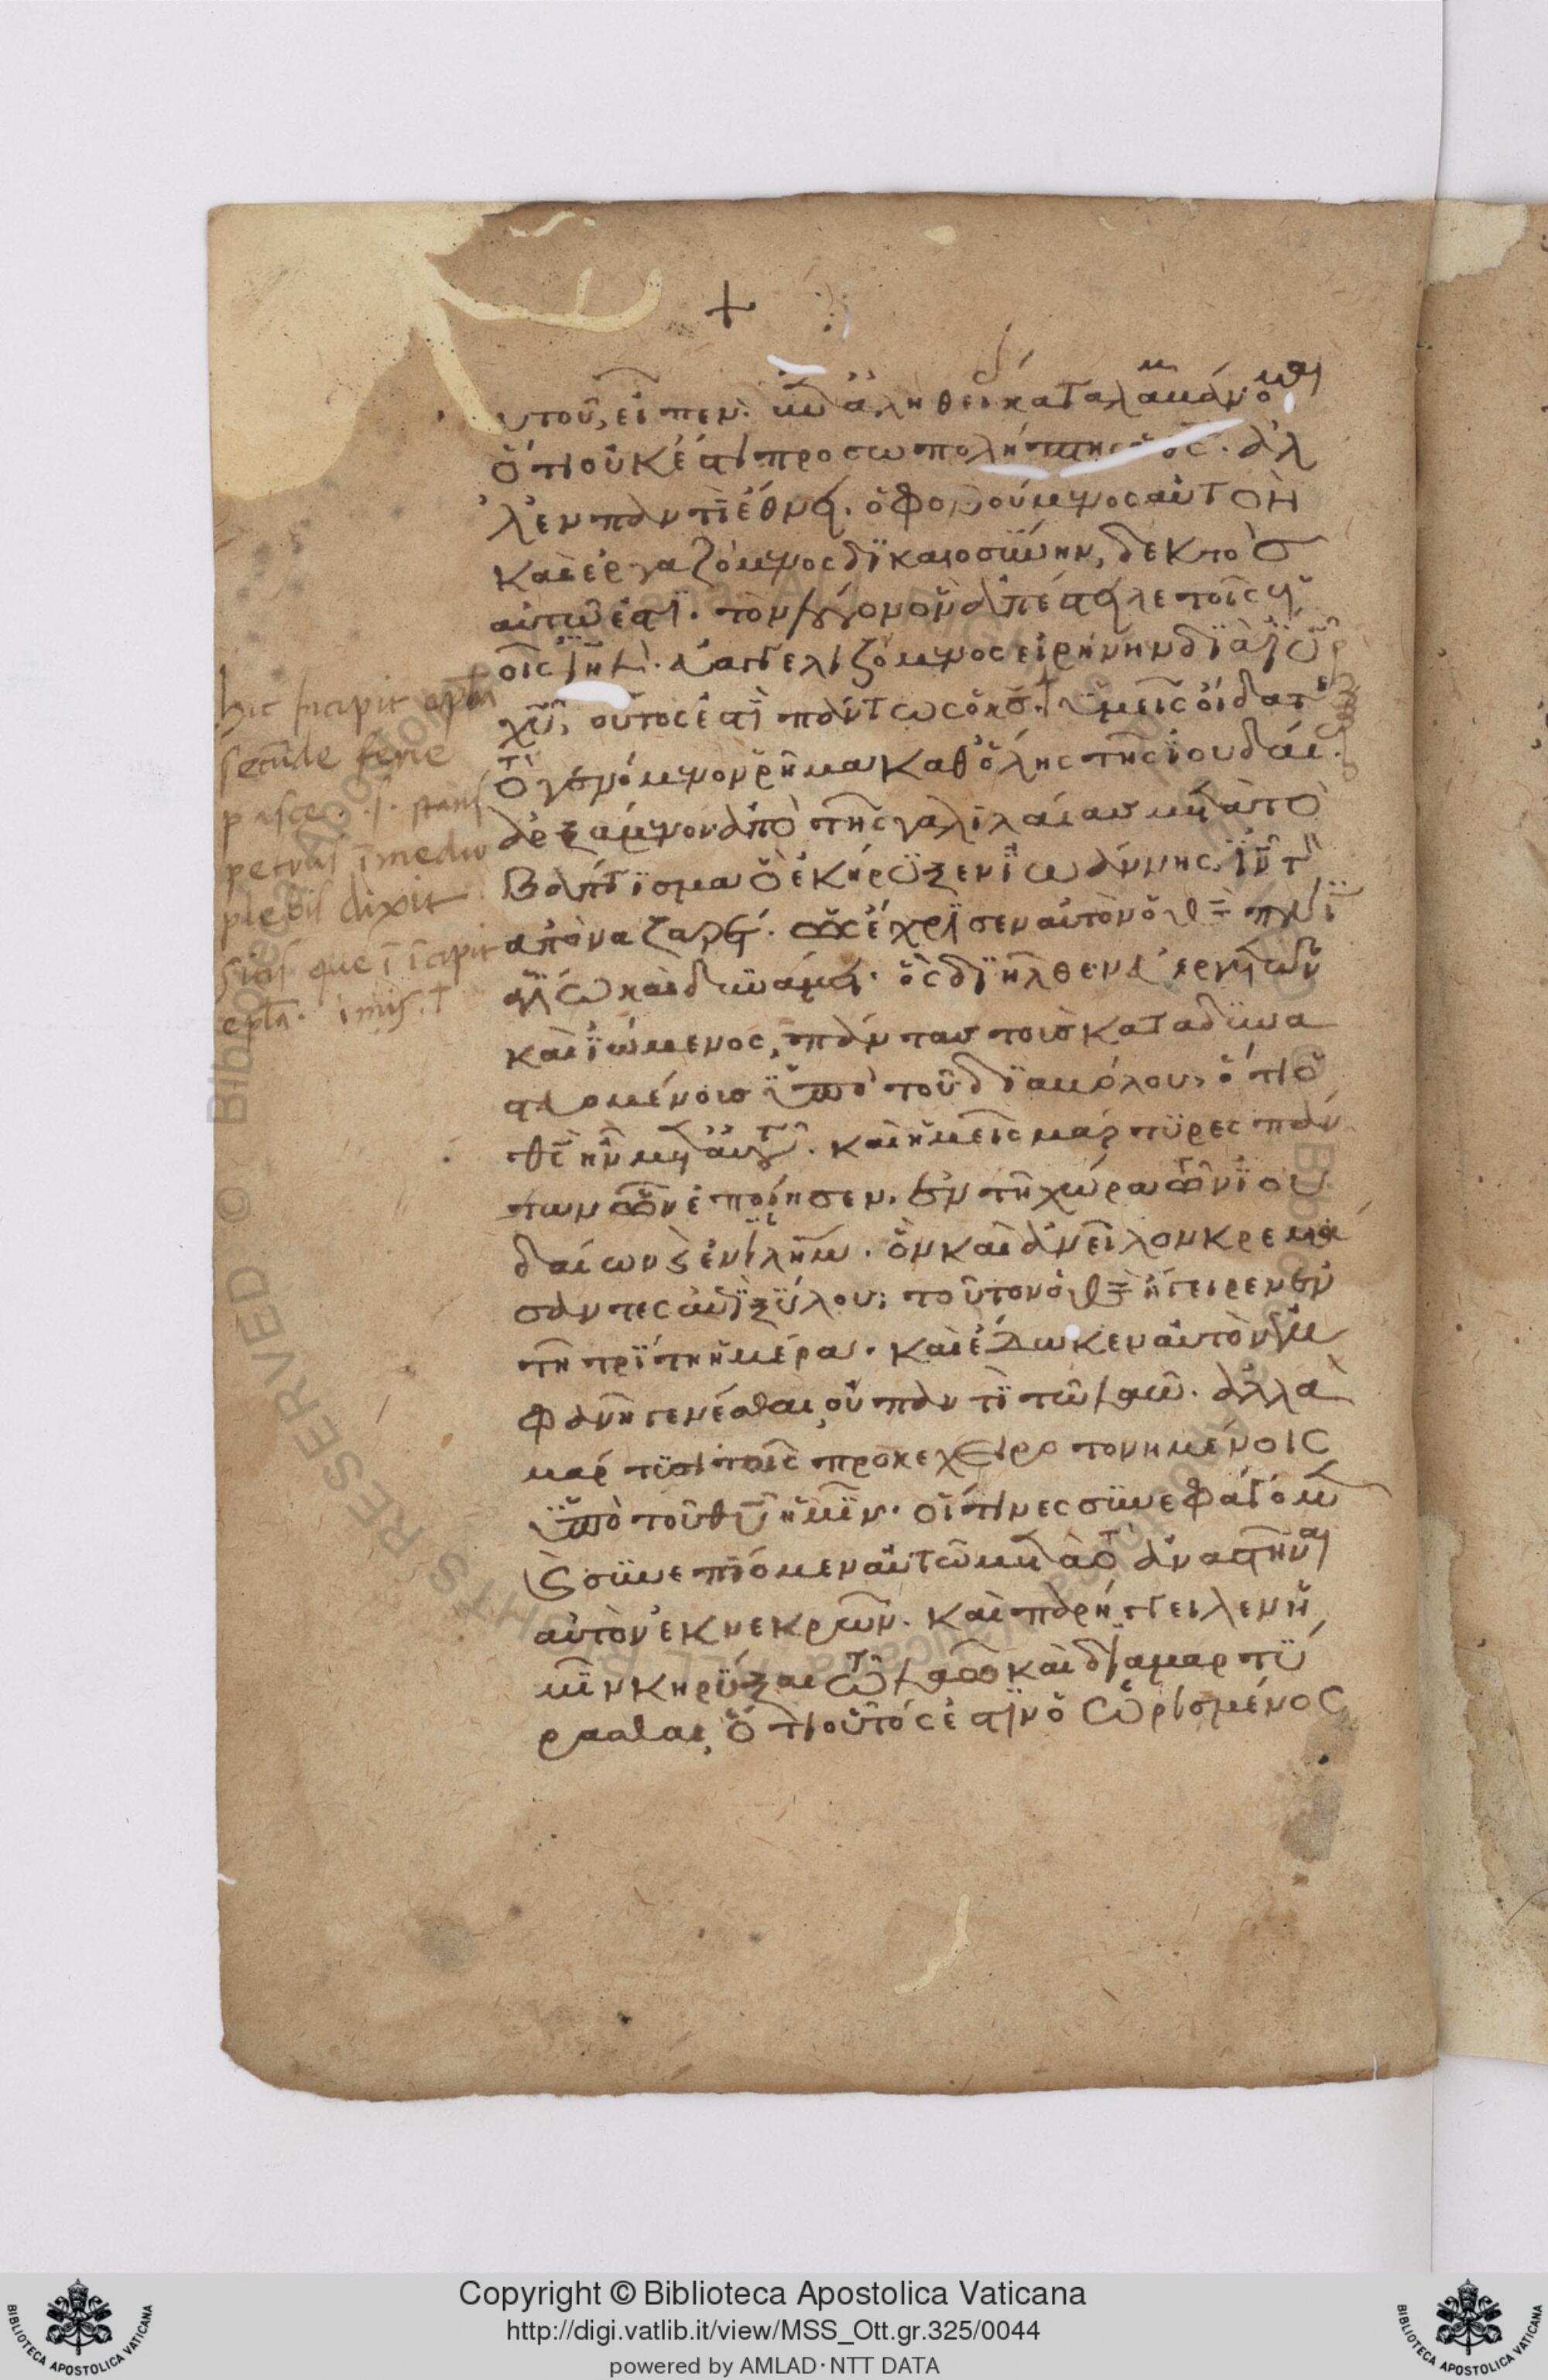 +
υτοῦ, εἶπεν. ἐπ ἀληθεί καταλαμβάνομαι
ὅτι οὐκ ἔστι προσωπολήπτης ὁ θς. ἀλ
λ' ἐν παντὶ ἔθνει. ὁ φοβούμενος αὐτὸν
καὶ ἐργαζόμενος δϊκαιοσϋνην, δεκτὸσ
αὐτῶ ἐστϊ. τὸν λόγον ὃν ἀπέστειλε τοῖς υἱ
οῖς ἰηλ. εὐαγγελιζόμενος εἰρήνην δϊὰ ἰυ
χυ, οὗτος ἐστϊ πάντων κσ. ὑμεῖς οἴδατε
τὸ γενόμενον ρῆμα καθ' ὅλης τῆς ϊουδαί.
ἀρξάμενον ἀπὸ τῆς γαλιλαίασ μετὰ τὸ
βάπτϊσμα ὃ ἐκήρϋξεν ϊωάννης. ϊν τὸν
απὸ ναζαρέτ. ὡς ἔχρϊσεν αὐτὸν ὁ θς πνι
ἁγίω καὶ δυνάμει. ὃς δϊῆλθεν εὐεργετῶν
καὶ ϊώμενος, πάντασ τοὺσ καταδϋνα
στευομένουσ ϋπὸ τοῦ δϊαβόλου, ὅτι ὁ
θς ἦν μετ αὐτοῦ. καὶ ἡμεῖς μάρτϋρες πάν
των ὧν ἐποίησεν. ἐν τῆ χώρα τῶν ϊου
δαίων κ ἐν ϊλημ. ὃν καὶ ἀνεῖλον κρεμά
σαντες ἐπὶ ξϋλου; τοῦτον ὁ θς ἤγειρεν ἐν
τῆ τρϊτη ἡμέρα. καὶ ἔδωκεν αὐτὸν ἐμ
φανῆ γενέσθαι, οὐ παντϊ τῶ λαῶ. ἀλλὰ
μάρτϋσι τοῖς προκεχειροτονημένοις
ϋπὸ τοῦ θυ ἡμῖν. οἵτινες σϋνεφάγομεν
κ σϋνεπίομεν αὐτῶ μετὰ τὸ ἀναστῆναι
αὐτὸν ἐκ νεκρῶν. καὶ παρήγγειλεν ἡ
μῖν κηρϋξαι τῶ λαῶ καὶ δϊαμαρτϋ
ρασθαι, ὅτι οὗτός ἐστϊν ὁ ὡρισμένος
hic incipit epla
secunde ferie
pasce. s. stans
petrus i medio
plebis dixit
epla.
Copyright © Biblioteca Apostolica Vaticana
http://digi.vatlib.it/view/MSS_Ott.gr.325/0044
powered by AMLAD·NTT DATA